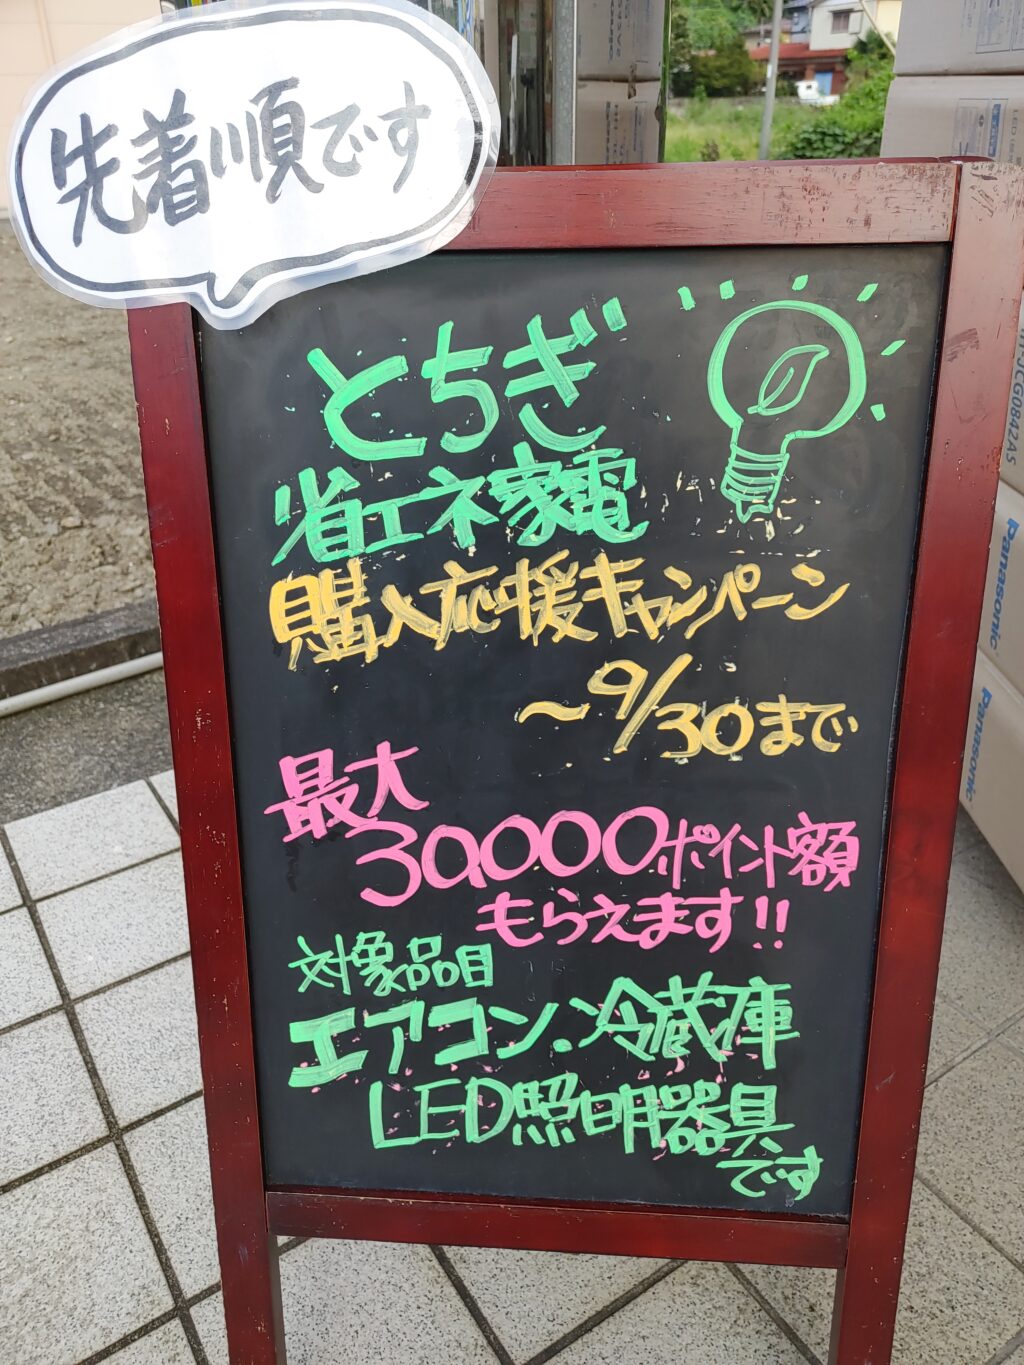 先着順です
とちぎ
省エネ家電
購入応援キャンペーン
～9/30まで
最大
30000ポイント額
もらえます!!
対象品目
エアコン.冷蔵庫
LED照明器具
です
Panasonic
Panasonic